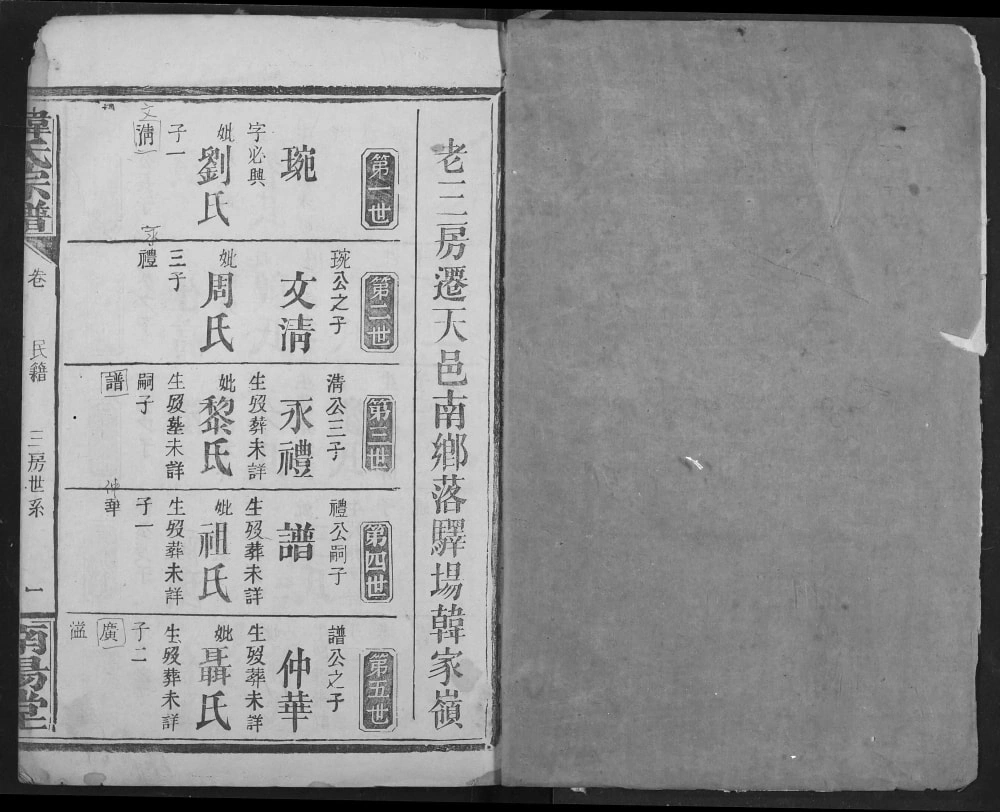 老三房遷天邑南鄉落驛場韓家嶺
第一世
琬
字必興
妣劉氏
子一
文清
第二世
琬公之子
文清
妣周氏
三子
永禮
第三世
清公三子
永禮
生歿葬未詳
妣黎氏
生歿墓未詳
嗣子
譜
第四世
禮公嗣子
譜
生歿葬未詳
妣祖氏
生歿葬未詳
子一
仲華
第五世
譜公之子
仲華
生歿葬未詳
妣聶氏
生歿葬未詳
子二
廣
溢
韓氏宗譜
卷
民籍
三房世系
一
南陽堂